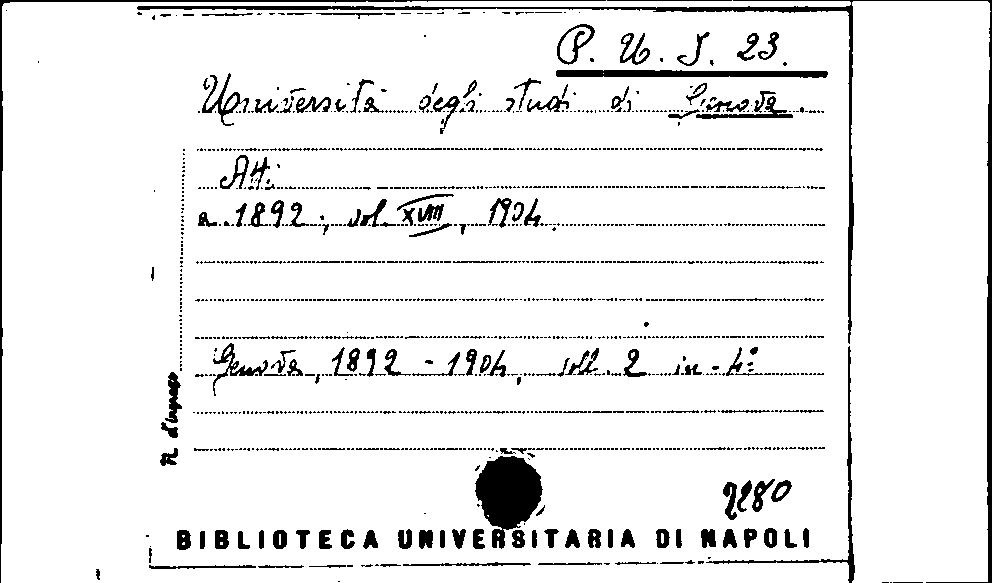 P. U. I. 23.
Università degli studi di Genova.
Atti
a. 1892; vol. XVIII, 1904.
Genova, 1892 - 1904, voll. 2 in-4°
N. d'ingresso
2280
BIBLIOTECA UNIVERSITARIA DI NAPOLI